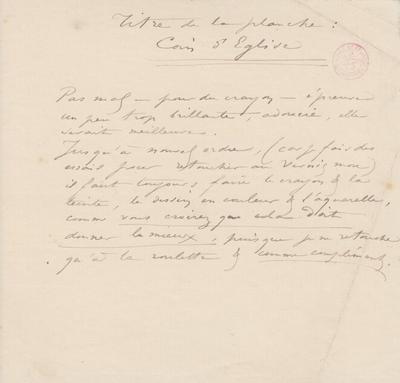 Titre de la planche :
Coin d'Eglise
Pas mal — pour du crayon — épreuve
un peu trop brillante, adoucie, elle
serait meilleure.
Jusqu'à nouvel ordre, (car je fais des
essais pour retoucher au vernis mou
il faut toujours faire le crayon & la
teinte, le dessin en couleur & l'aquarelle,
comme vous croirez que cela doit
donner le mieux, puisque je ne retouche
qu'à la roulette & comme complément.